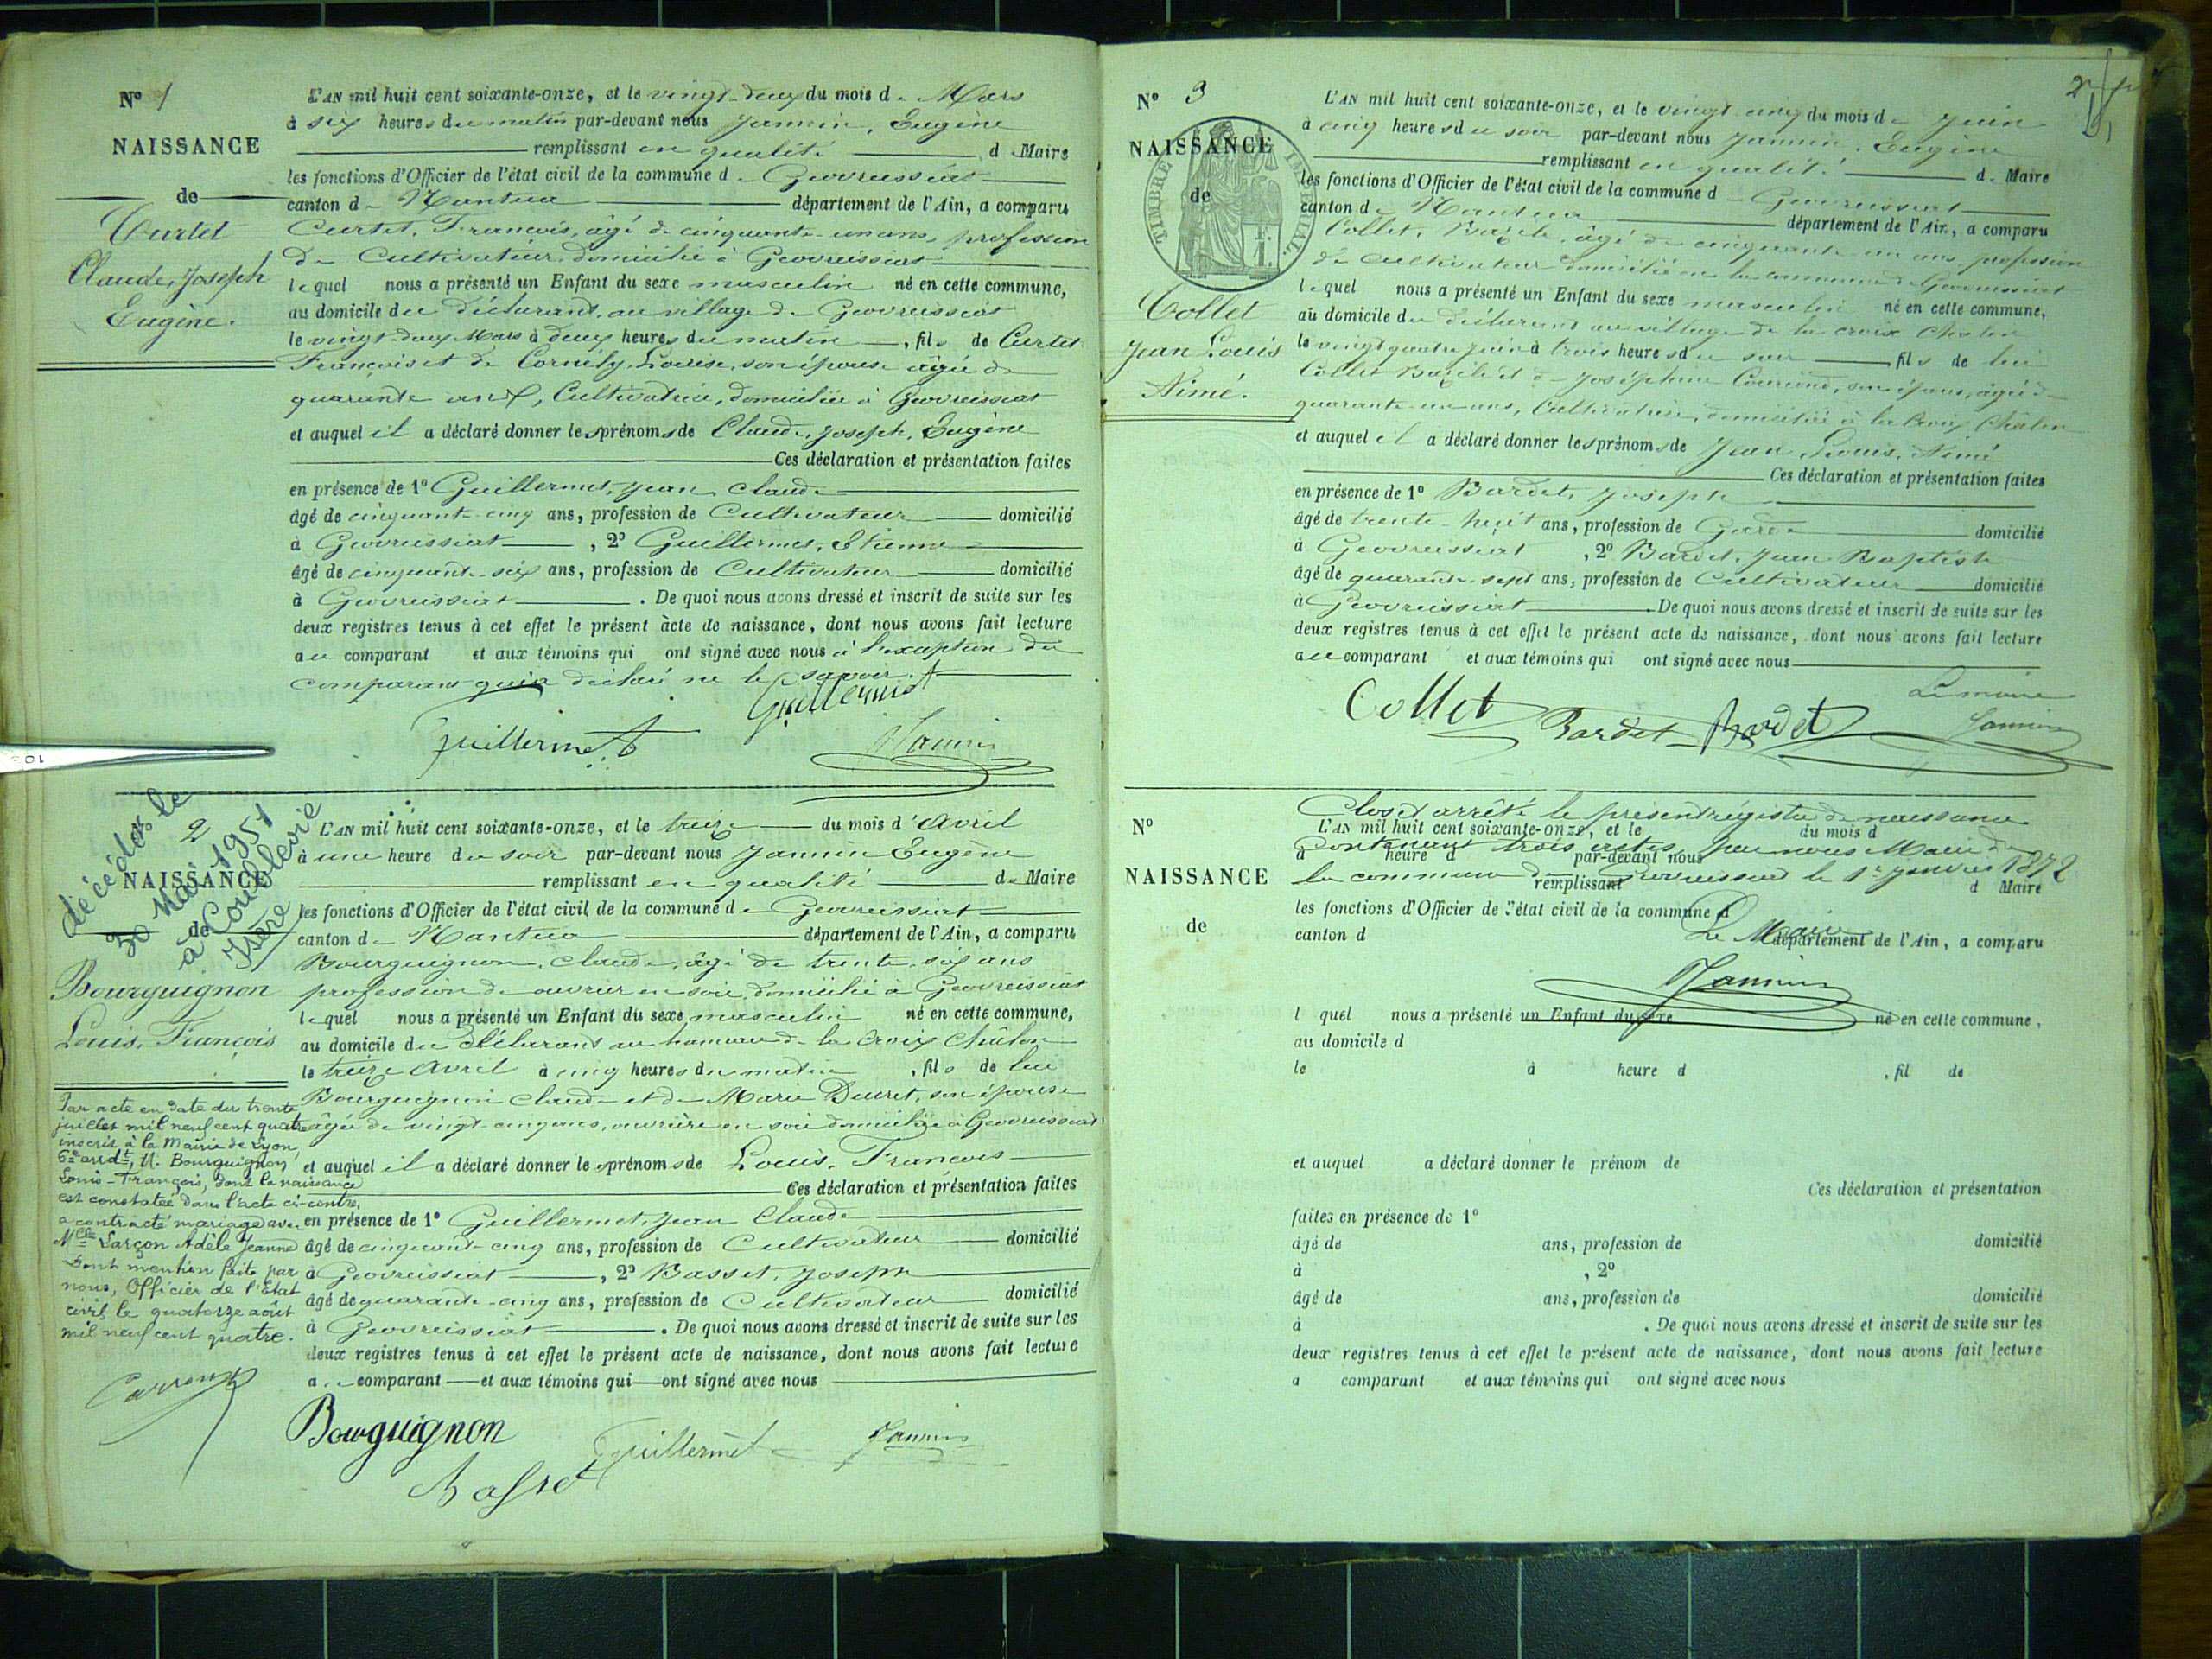 N° 1
NAISSANCE
de
Curtet
Claude, Joseph
Eugène.
L'AN mil huit cent soixante-onze, et le vingt-deux du mois de Mars
à six heures du matin par-devant nous Jannin, Eugène
remplissant en qualité de Maire
les fonctions d'Officier de l'état civil de la commune de Geovreissiat
canton de Nantua département de l'Ain, a comparu
Curtet, François, âgé de cinquante-un ans, profession
de Cultivateur, domicilié à Geovreissiat
lequel nous a présenté un Enfant du sexe masculin né en cette commune,
au domicile du déclarant, au village de Geovreissiat
le vingt-deux Mars à deux heures du matin, fils de Curtet
François et de Cornély, Louise, son épouse âgée de
quarante ans, Cultivatrice, domiciliée à Geovreissiat
et auquel il a déclaré donner les prénoms de Claude, Joseph, Eugène
Ces déclaration et présentation faites
en présence de 1° Guillermet, Jean Claude
âgé de cinquante-cinq ans, profession de Cultivateur domicilié
à Geovreissiat, 2° Guillermet, Etienne
âgé de cinquante-six ans, profession de Cultivateur domicilié
à Geovreissiat. De quoi nous avons dressé et inscrit de suite sur les
deux registres tenus à cet effet le présent acte de naissance, dont nous avons fait lecture
au comparant et aux témoins qui ont signé avec nous à l'exception du
comparant qui a déclaré ne le savoir.
Guillermet
Guillermet
Jannin
2
décédé le
30 Mai 1951
à Coublevie
Isère
NAISSANCE
de
Bourguignon
Louis, François
Par acte en date du trente
juillet mil neuf cent quatre
inscrit à la Mairie de Lyon,
6e arrdt, M. Bourguignon
Louis-François, dont la naissance
est constatée dans l'acte ci-contre,
a contracté mariage avec
Mlle Larçon Adèle Jeanne
Dont mention faite par
nous, Officier de l'Etat
civil, le quatorze août
mil neuf cent quatre.
L'AN mil huit cent soixante-onze, et le treize du mois d'Avril
à une heure du soir par-devant nous Jannin Eugène
remplissant en qualité de Maire
les fonctions d'Officier de l'état civil de la commune de Geovreissiat
canton de Nantua département de l'Ain, a comparu
Bourguignon, Claude, âgé de trente-six ans
profession de ouvrier en soie, domicilié à Geovreissiat
lequel nous a présenté un Enfant du sexe masculin né en cette commune,
au domicile du déclarant au hameau de la Croix Châlon
le treize Avril à cinq heures du matin, fils de lui
Bourguignon Claude et de Marie Ducret, son épouse
âgée de vingt-cinq ans, ouvrière en soie domiciliée à Geovreissiat
et auquel il a déclaré donner les prénoms de Louis, François
Ces déclaration et présentation faites
en présence de 1° Guillermet, Jean Claude
âgé de cinquante-cinq ans, profession de Cultivateur domicilié
à Geovreissiat, 2° Basset, Joseph
âgé de quarante-cinq ans, profession de Cultivateur domicilié
à Geovreissiat. De quoi nous avons dressé et inscrit de suite sur les
deux registres tenus à cet effet le présent acte de naissance, dont nous avons fait lecture
au comparant et aux témoins qui ont signé avec nous
Bourguignon
Guillermet
Jannin
Basset
N° 3
NAISSANCE
de
TIMBRE IMPÉRIAL
1 F.
Collet
Jean Louis
Aimé.
L'AN mil huit cent soixante-onze, et le vingt-cinq du mois de Juin
à cinq heures du soir par-devant nous Jannin, Eugène
remplissant en qualité de Maire
les fonctions d'Officier de l'état civil de la commune de Geovreissiat
canton de Nantua département de l'Ain, a comparu
Collet, Bazile, âgé de cinquante-un ans, profession
de cultivateur domicilié en la commune de Geovreissiat
lequel nous a présenté un Enfant du sexe masculin né en cette commune,
au domicile du déclarant au village de la croix Châlon
le vingt quatre juin à trois heures du soir fils de lui
Collet Bazile et de Joséphine son épouse, âgée de
quarante-un ans, Cultivatrice, domiciliée à la Croix Châlon
et auquel il a déclaré donner les prénoms de Jean, Louis, Aimé
Ces déclaration et présentation faites
en présence de 1° Bardet, Joseph
âgé de trente-huit ans, profession de Garde domicilié
à Geovreissiat, 2° Bardet, Jean Baptiste
âgé de quarante-sept ans, profession de Cultivateur domicilié
à Geovreissiat. De quoi nous avons dressé et inscrit de suite sur les
deux registres tenus à cet effet le présent acte de naissance, dont nous avons fait lecture
au comparant et aux témoins qui ont signé avec nous
Le maire
Collet Bardet Bardet Jannin
N°
NAISSANCE
de
Clos et arrêté le présent registre de naissance
L'AN mil huit cent soixante-onze, et le du mois d
Contenant trois actes, par nous Maire de
à heure d par-devant nous
la commune de Geovreissiat le 1er Janvier 1872
remplissant d Maire
les fonctions d'Officier de l'état civil de la commune d
Le Maire
canton d département de l'Ain, a comparu
Jannin
l quel nous a présenté un Enfant du sexe né en cette commune,
au domicile d
le à heure d , fil de
et auquel a déclaré donner le prénom de
Ces déclaration et présentation
faites en présence de 1°
âgé de ans, profession de domicilié
à , 2°
âgé de ans, profession de domicilié
à . De quoi nous avons dressé et inscrit de suite sur les
deux registres tenus à cet effet le présent acte de naissance, dont nous avons fait lecture
a comparant et aux témoins qui ont signé avec nous